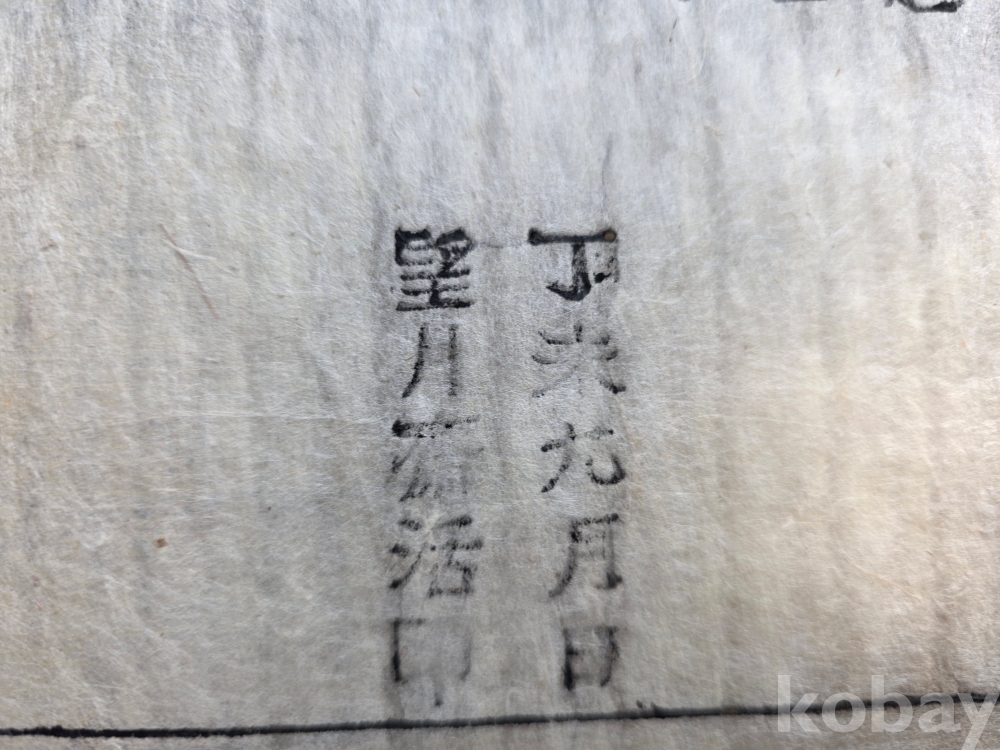 丁未九月日
望活印
kobay